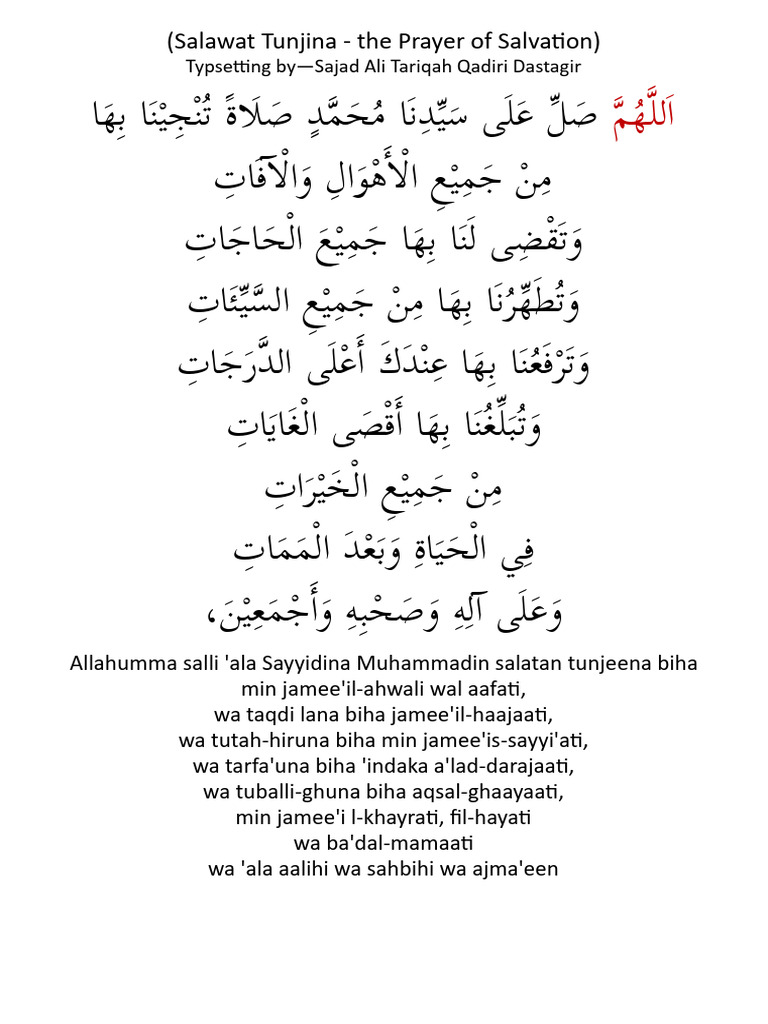 (Salawat Tunjina - the Prayer of Salvation)
Typsetting by—Sajad Ali Tariqah Qadiri Dastagir
اَللَّهُمَّ صَلِّ عَلَى سَيِّدِنَا مُحَمَّدٍ صَلَاةً تُنْجِيْنَا بِهَا
مِنْ جَمِيْعِ الْأَهْوَالِ وَالْآفَاتِ
وَتَقْضِى لَنَا بِهَا جَمِيْعَ الْحَاجَاتِ
وَتُطَهِّرُنَا بِهَا مِنْ جَمِيْعِ السَّيِّئَاتِ
وَتَرْفَعُنَا بِهَا عِنْدَكَ أَعْلَى الدَّرَجَاتِ
وَتُبَلِّغُنَا بِهَا أَقْصَى الْغَايَاتِ
مِنْ جَمِيْعِ الْخَيْرَاتِ
فِي الْحَيَاةِ وَبَعْدَ الْمَمَاتِ
وَعَلَى آلِهِ وَصَحْبِهِ وَأَجْمَعِيْنَ،
Allahumma salli 'ala Sayyidina Muhammadin salatan tunjeena biha
min jamee'il-ahwali wal aafati,
wa taqdi lana biha jamee'il-haajaati,
wa tutah-hiruna biha min jamee'is-sayyi'ati,
wa tarfa'una biha 'indaka a'lad-darajaati,
wa tuballi-ghuna biha aqsal-ghaayaati,
min jamee'i l-khayrati, fil-hayati
wa ba'dal-mamaati
wa 'ala aalihi wa sahbihi wa ajma'een